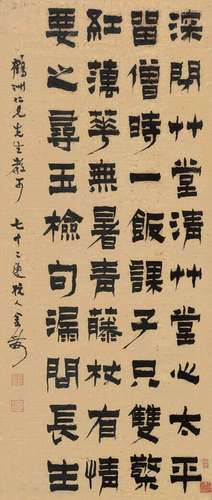 深閉艸堂清艸堂心太平
留僧時一飯課子只雙檠
紅蕅華無暑青藤杖有情
要之尋玉檢句漏問長生
鶴洲仁兄先生教可 七十二